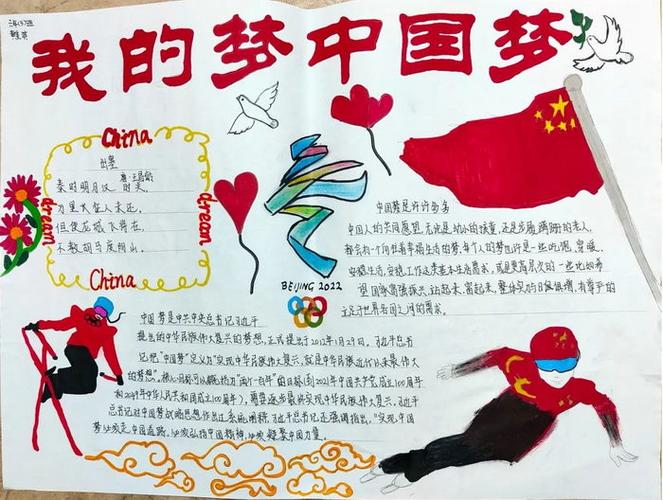 我的梦中国梦
China
出塞
唐·王昌龄
秦时明月汉时关,
万里长征人未还。
但使龙城飞将在,
不教胡马度阴山。
dream
dream
China
BEIJING 2022
中国梦是许许多多
中国人的共同愿望,无论是幼小的孩童,还是步履蹒跚的老人,
都会有一个向往着幸福生活的梦,每个人的梦也许是一些吃饱、穿暖、
安稳生活、安稳工作这类基本生活需求,或是更高层次的一些比如希
望国家富强振兴、站起来、富起来、整体实力日候俱增,有尊严的
立足于世界各国之间的需求。
中国梦是中共中央总书记习近平
提出的中华民族伟大复兴的梦想,正式提出于2012年11月29日。习近平总书
记把"中国梦"定义为"实现中华民族伟大复兴,就是中华民族近代以来最伟大
的梦想",核心目标可以概括为"两个一百年"的目标(到2021年中国共产党成立100周年
和2049年中华人民共和国成立100周年),逐步
总书记对中国梦战略思想作出过系统阐释,习近平总书记还强调指出,"实现中国
梦必须走中国道路、必须弘扬中国精神、必须凝聚中国力量。